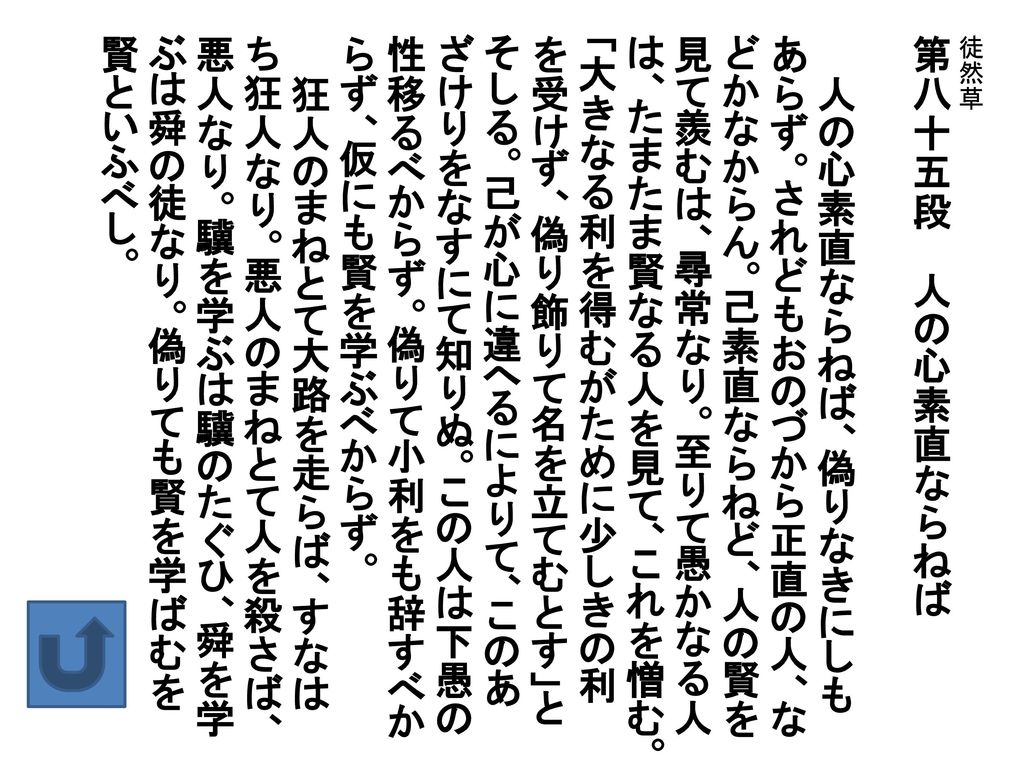 徒然草
第八十五段　人の心素直ならねば
　人の心素直ならねば、偽りなきにしも
あらず。されどもおのづから正直の人、な
どかなからん。己素直ならねど、人の賢を
見て羨むは、尋常なり。至りて愚かなる人
は、たまたま賢なる人を見て、これを憎む。
「大きなる利を得むがために少しきの利
を受けず、偽り飾りて名を立てむとす」と
そしる。己が心に違へるによりて、このあ
ざけりをなすにて知りぬ。この人は下愚の
性移るべからず。偽りて小利をも辞すべか
らず、仮にも賢を学ぶべからず。
　狂人のまねとて大路を走らば、すなは
ち狂人なり。悪人のまねとて人を殺さば、
悪人なり。驥を学ぶは驥のたぐひ、舜を学
ぶは舜の徒なり。偽りても賢を学ばむを
賢といふべし。